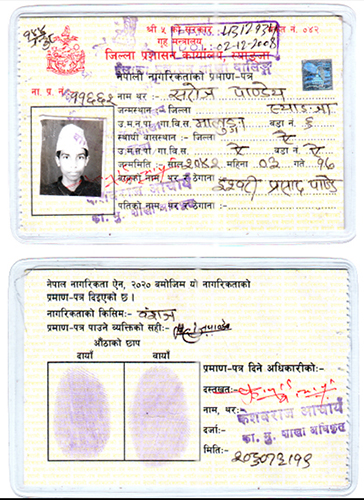 श्री ५ को सरकार
गृह मन्त्रालय
जिल्ला प्रशासन कार्यालय, स्याङ्जा
नेपाली नागरिकताको प्रमाण-पत्र
ना. प्र. नं. ११६६२ नाम थर:- सरोज पाण्डेय
जन्मस्थान:- जिल्ला स्याङ्जा
उ.म.न.पा./गा.वि.स. आलुङ्गा वडा नं. ६
स्थायी बासस्थान:- जिल्ला ऐ
उ.म.न.पा./गा.वि.स. ऐ वडा नं. ऐ
जन्ममिति:- साल २०४२ महिना ०३ गते १६
बाबुको नाम थर र ठेगाना ईश्वरी प्रसाद पाण्डे
पतिको नाम थर र ठेगाना:-
नेपाल नागरिकता ऐन, २०२० बमोजिम यो नागरिकताको
प्रमाण-पत्र दिइएको छ।
नागरिकताको किसिम:- वंशज
प्रमाण-पत्र पाउने व्यक्तिको सही:-
औंठाको छाप
दायाँ बायाँ
प्रमाण-पत्र दिने अधिकारीको:-
दस्तखत:-
नाम, थर: केशवराज आचार्य
दर्जा:- का. मु. शाखा अधिकृत
मिति:-